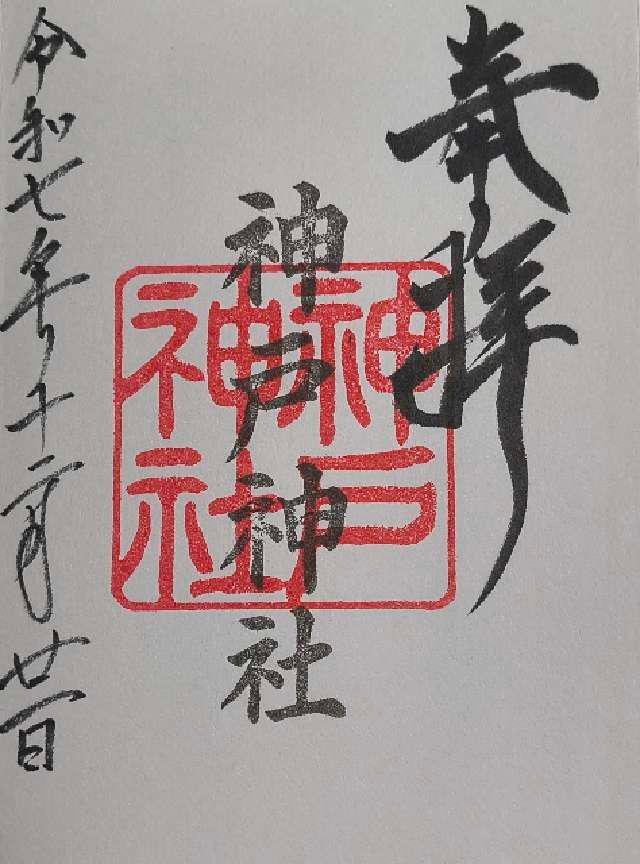 奉拝
神戸神社
神戸
神社
令和七年十二月廿一日